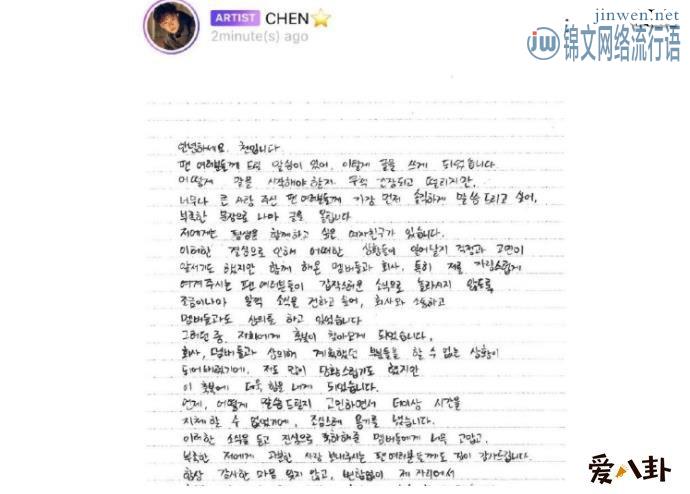 ARTIST CHEN
2minute(s) ago
jinwen.net
jw 锦文网络流行语
안녕하세요. 첸입니다
팬 여러분들께 드릴 말씀이 있어, 이렇게 글을 쓰게 되었습니다
어떻게 말을 시작해야 할지 무척 긴장되고 떨리지만,
너무나 큰 사랑 주신 팬 여러분들께 가장 먼저 솔직하게 말씀드리고 싶어,
부족한 문장으로 나마 글을 올립니다
저에게는 평생을 함께하고 싶은 여자친구가 있습니다.
이러한 결심으로 인해 어떠한 상황들이 일어날지 걱정과 고민이
앞서기도 했지만 함께 해온 멤버들과 회사, 특히 저를 자랑스럽게
여겨주시는 팬 여러분들이 갑작스러운 소식으로 놀라시지 않도록
조금이나마 일찍 소식을 전하고 싶어, 회사와 소통하고
멤버들과도 상의를 하고 있었습니다
그러던 중, 저희에게 축복이 찾아오게 되었습니다,
회사, 멤버들과 상의해 계획했던 부분들을 할 수 없는 상황이
되어버렸기에, 저도 많이 당황스럽기도 했지만
이 축복에 더욱 힘을 내게 되었습니다.
언제, 어떻게 말씀드릴지 고민하면서 더이상 시간을
지체할 수 없었기에, 조심스레 용기를 냈습니다.
이러한 소식을 듣고 진심으로 축하해준 멤버들에게 너무 고맙고,
부족한 저에게 과분한 사랑 보내주시는 팬 여러분들께도 깊이 감사드립니다.
항상 감사한 마음 잊지 않고, 변함없이 제 자리에서
爱八卦